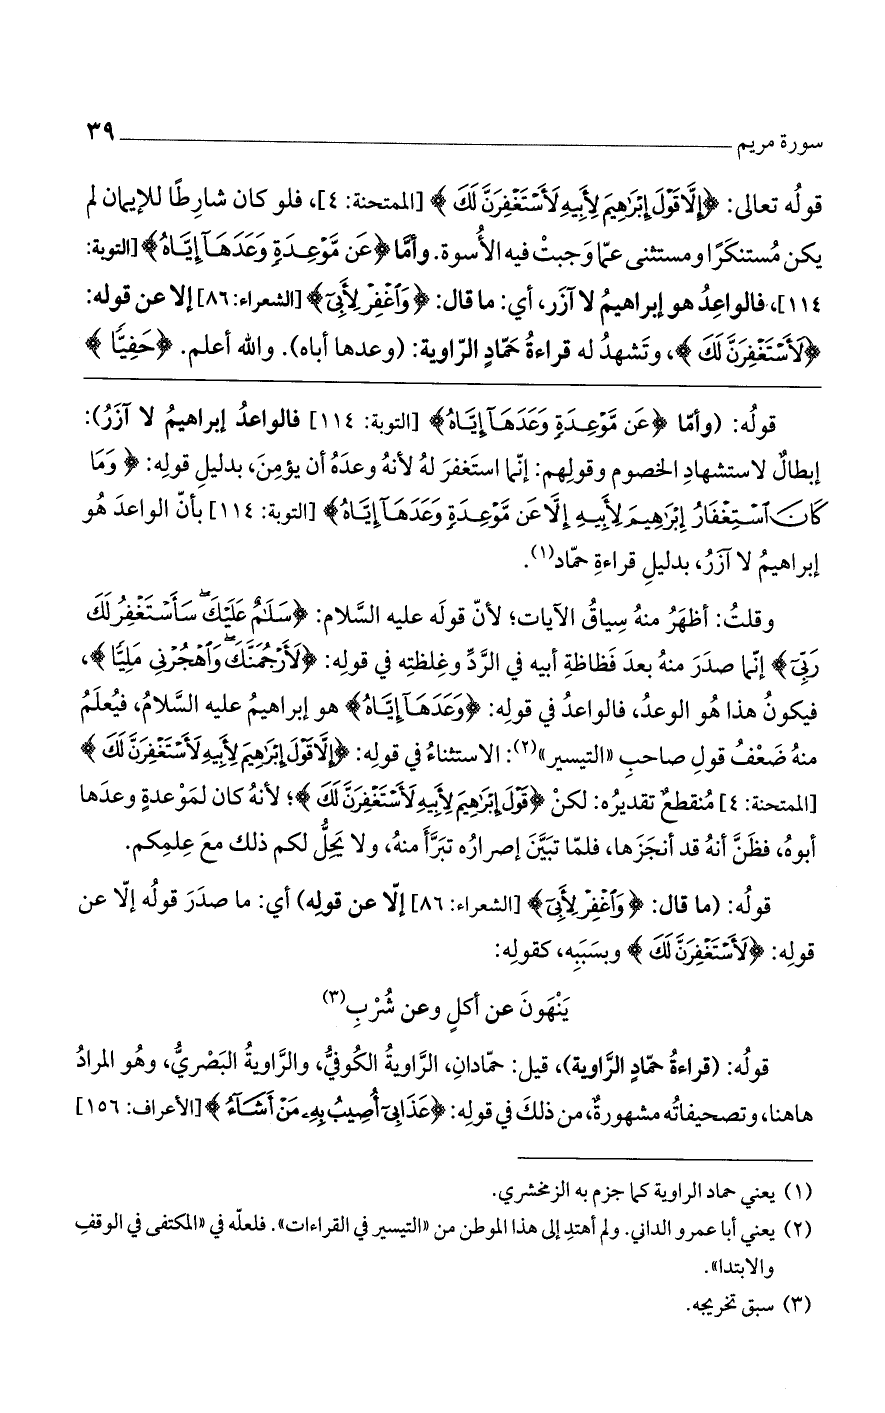 سورة مريم ٣٩
قولُه تعالى: ﴿إِلَّا قَوْلَ إِبْرَٰهِيمَ لِأَبِيهِ لَأَسْتَغْفِرَنَّ لَكَ﴾ [الممتحنة: ٤]، فلو كان شارِطًا للإيمان لم
يكن مُستنكَرًا ومستثنى عمّا وَجبتْ فيه الأُسوة. وأمَّا ﴿عَن مَّوْعِدَةٍ وَعَدَهَآ إِيَّاهُ﴾ [التوبة:
١١٤]، فالواعِدُ هو إبراهيمُ لا آزَر، أي: ما قال: ﴿وَٱغْفِرْ لِأَبِىٓ﴾ [الشعراء: ٨٦] إلا عن قوله:
﴿لَأَسْتَغْفِرَنَّ لَكَ﴾، وتَشهدُ له قراءةُ حَمَّادٍ الرّاوية: (وعدها أباه). والله أعلم. ﴿حَفِيًّا﴾
قولُه: (وأمّا ﴿عَن مَّوْعِدَةٍ وَعَدَهَآ إِيَّاهُ﴾ [التوبة: ١١٤] فالواعدُ إبراهيمُ لا آزَرُ):
إبطالٌ لاستشهادِ الخصوم وقولِهم: إنّما استَغفرَ لهُ لأنهُ وعدَهُ أن يؤمِنَ، بدليلِ قولِه: ﴿وَمَا
كَانَ ٱسْتِغْفَارُ إِبْرَٰهِيمَ لِأَبِيهِ إِلَّا عَن مَّوْعِدَةٍ وَعَدَهَآ إِيَّاهُ﴾ [التوبة: ١١٤] بأنّ الواعدَ هُو
إبراهيمُ لا آزَرُ، بدليلِ قراءةِ حمّاد(١).
وقلتُ: أظهَرُ منهُ سِياقُ الآيات؛ لأنّ قولَه عليه السَّلام: ﴿سَلَٰمٌ عَلَيْكَ ۖ سَأَسْتَغْفِرُ لَكَ
رَبِّىٓ﴾ إنّما صدَرَ منهُ بعدَ فَظاظةِ أبيه في الرَّدِّ وغِلظتِه في قولِه: ﴿لَأَرْجُمَنَّكَ ۖ وَٱهْجُرْنِى مَلِيًّا﴾،
فيكونُ هذا هُو الوعدُ، فالواعدُ في قولِه: ﴿وَعَدَهَآ إِيَّاهُ﴾ هو إبراهيمُ عليه السَّلامُ، فيُعلَمُ
منهُ ضَعْفُ قولِ صاحبِ «التيسير»(٢): الاستثناءُ في قولِه: ﴿إِلَّا قَوْلَ إِبْرَٰهِيمَ لِأَبِيهِ لَأَسْتَغْفِرَنَّ لَكَ﴾
[الممتحنة: ٤] مُنقطعٌ تقديرُه: لكنْ ﴿قَوْلَ إِبْرَٰهِيمَ لِأَبِيهِ لَأَسْتَغْفِرَنَّ لَكَ﴾؛ لأنهُ كان لمَوْعدةٍ وعدَها
أبوهُ، فظَنَّ أنهُ قد أنجَزَها، فلمّا تبَيَّنَ إصرارُه تبَرَّأَ منهُ، ولا يَحِلُّ لكم ذلك معَ عِلمِكم.
قولُه: (ما قال: ﴿وَٱغْفِرْ لِأَبِىٓ﴾ [الشعراء: ٨٦] إلّا عن قولِه) أي: ما صدَرَ قولُه إلّا عن
قولِه: ﴿لَأَسْتَغْفِرَنَّ لَكَ﴾ وبسَبَبِه، كقولِه:
يَنْهَونَ عن أكلٍ وعن شُرْبِ(٣)
قولُه: (قراءةُ حمّادٍ الرَّاوية)، قيل: حمّادانِ، الرَّاويةُ الكُوفيُّ، والرَّاويةُ البَصْريُّ، وهُو المرادُ
هاهنا، وتصحيفاتُه مشهورةٌ، من ذلكَ في قولِه: ﴿عَذَابِىٓ أُصِيبُ بِهِۦ مَنْ أَشَآءُ﴾ [الأعراف: ١٥٦]
(١) يعني حماد الراوية كما جزم به الزمخشري.
(٢) يعني أبا عمرو الداني. ولم أهتدِ إلى هذا الموطن من «التيسير في القراءات». فلعلّه في «المكتفى في الوقفِ
والابتدا».
(٣) سبق تخريجه.